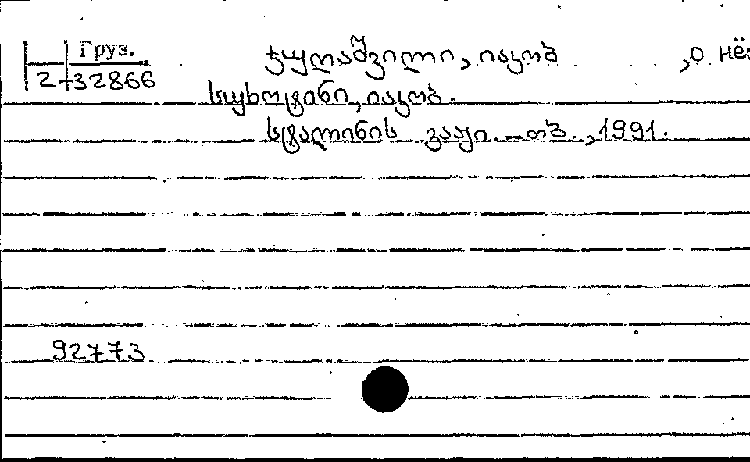 Груз.
2-32866
ჯუღაშვილი, იაკობ ,о нём
სუხოტინი, იაკობ.
სტალინის ვაჟი. – თბ., 1991.
92773